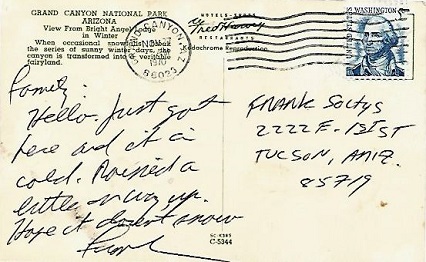 GRAND CANYON NATIONAL PARK
ARIZONA
View From Bright Angel Lodge
in Winter
When occasional snowfalls break
the series of sunny winter days, the
canyon is transformed into a veritable
fairyland.
Hello. Just got
here and it is
cold. Rained a
little on way up.
Hope it doesnt snow
Frank
GRAND CANYON, ARIZ.
NOV
1970
86023
HOTELS • SHOPS
Fred Harvey
RESTAURANTS
Kodachrome Reproduction
5¢ WASHINGTON
UNITED STATES
FRANK Soltys
2222 E. 1st ST
TUCSON, ARIZ.
85719
C-5344